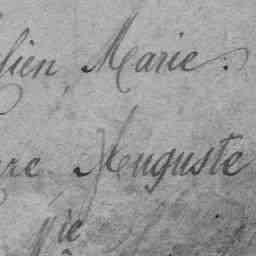 lien Marie.
re Auguste